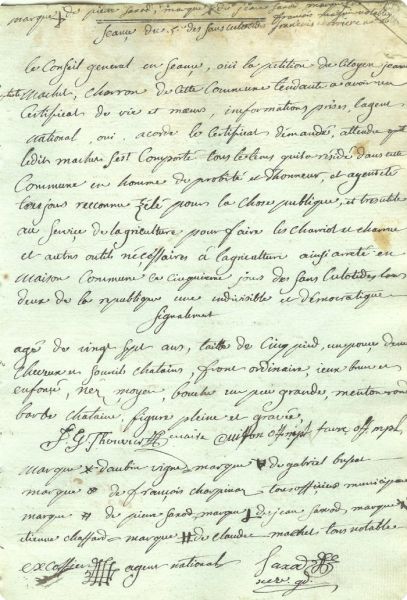 marque de pierre Savod, marque de jean Savod marque
Seance du 5e des Sansculotides
le Conseil general en Seance, oui la petition du Citoyen jean
machet, charron de Cette Commune tendante a avoir un
Certificat de vie et mœurs, informations prises, lagent
national oui, acorde le Certificat demandé, attendu que
ledit machet Sest Comporté tous le tems quila residé dans cette
Commune en homme de probité et dhonneur, et agent été
tousjours reconnu Zelé pour la chose publique, et tres utile
au Service de lagriculture pour faire les chariots et charrue
et autres outils nécéssaires à lagriculture ainsi areté en
maison Commune le Cinquieme jours des Sans Culotides, lan
deux de la republique une indivisible et démocratique
Signalment
agé de vingt Sept ans, taille de Cinq pied, un pouce, demi
cheveux et Sourcils chatains, front ordinaire, ieux brun et
enfoncé, nez moyen, bouche un peu grande, menton rond
barbe chataine, figure pleine et gravée,
maire off mpl favre off. mpl
marque x daubin vigne marque de gabriel
marque de françois chappinat tous officiers municipaux
marque # de pierre Savod marque de jean Savod, marque
etienne chaffard marque # de claude machet tous notable
agent national Savod